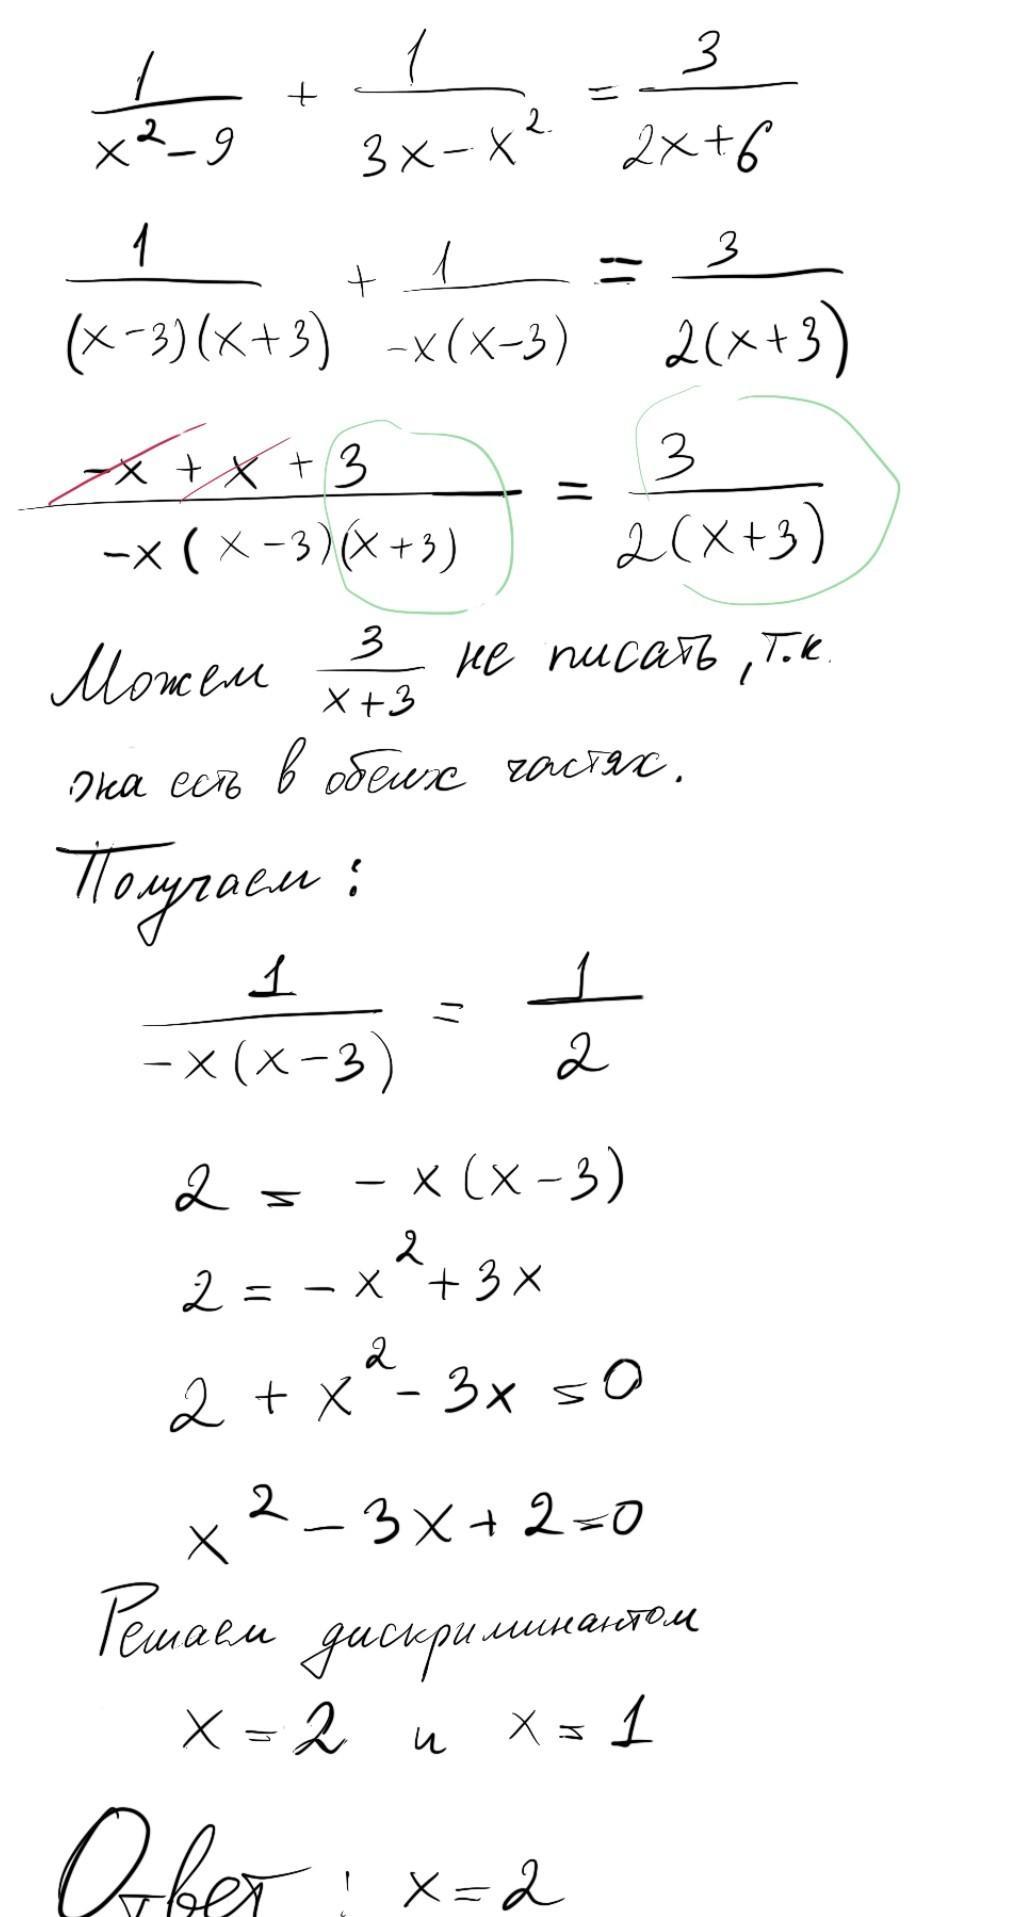 1/(x² - 9) + 1/(3x - x²) = 3/(2x + 6)
1/((x - 3)(x + 3)) + 1/(-x(x - 3)) = 3/(2(x + 3))
(-x + x + 3)/(-x(x - 3)(x + 3)) = 3/(2(x + 3))
Можем 3/(x + 3) не писать, т.к.
она есть в обеих частях.
Получаем:
1/(-x(x - 3)) = 1/2
2 = -x(x - 3)
2 = -x² + 3x
2 + x² - 3x = 0
x² - 3x + 2 = 0
Решаем дискриминантом
x = 2 и x = 1
Ответ: x = 2